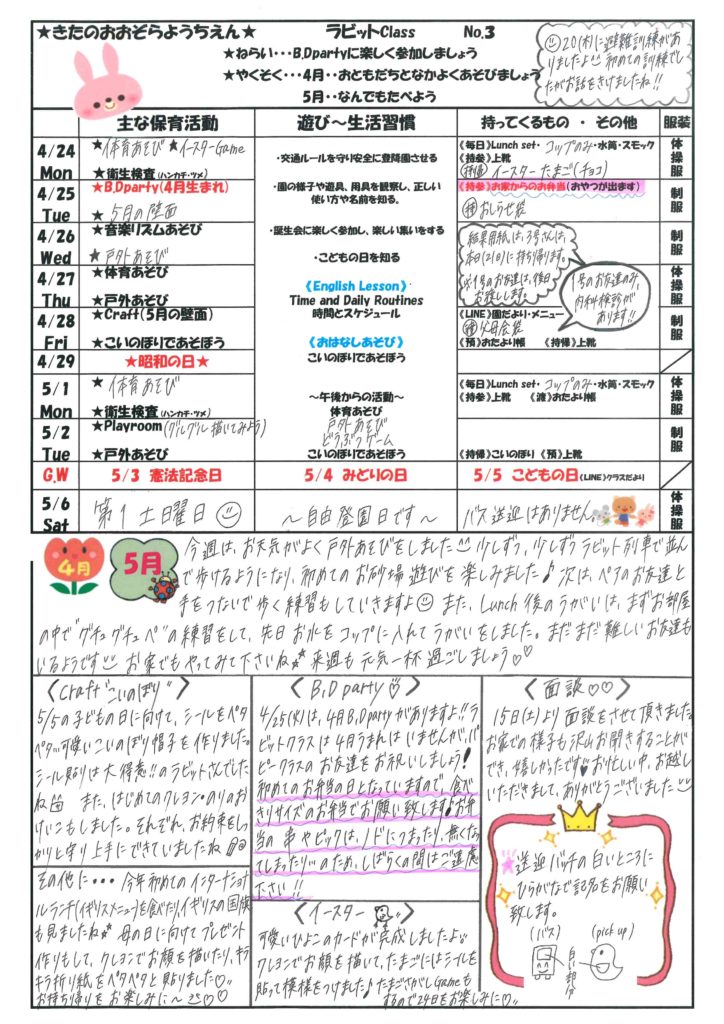 ★きたのおおぞらようちえん★ ラビットClass No.3
★ねらい・・・B.Dpartyに楽しく参加しましょう
★やくそく・・・4月・・おともだちとなかよくあそびましょう
5月・・なんでもたべよう
20(木)に避難訓練が
ありましたよ 初めての訓練でし
たがお話をきけましたね!!
主な保育活動 遊び～生活習慣 持ってくるもの ・ その他 服装
4/24 Mon
★体育あそび ★イースターGame
★衛生検査(ハンカチ・ツメ)
・交通ルールを守り安全に登降園させる
《毎日》Lunch set・コップのみ・水筒・スモック
《持参》上靴
《持帰》イースターたまご(チョコ)
体操服
4/25 Tue
★B.Dparty(4月生まれ)
★5月の壁面
・園の様子や遊具、用具を観察し、正しい
使い方や名前を知る。
《持参》お家からのお弁当(おやつが出ます)
おしらせ袋
制服
4/26 Wed
★音楽リズムあそび
★戸外あそび
・誕生会に楽しく参加し、楽しい集いをする
・こどもの日を知る
結果用紙は、3号さんは、
本日(21日)に持ち帰ります。
※1号のお友達は、後日
お渡しします。
制服
4/27 Thu
★体育あそび
★戸外あそび
《English Lesson》
Time and Daily Routines
時間とスケジュール
1号のお友達のみ、
内科検診が
あります!!
体操服
4/28 Fri
★Craft(5月の壁面)
★こいのぼりであそぼう
《おはなしあそび》
こいのぼりであそぼう
《LINE》園だより・メニュー
父母会袋
《預》おたより帳 《持帰》上靴
制服
4/29 ★昭和の日★
5/1 Mon
★体育あそび
★衛生検査(ハンカチ・ツメ)
～午後からの活動～
体育あそび
《毎日》Lunch set・コップのみ・水筒・スモック
《持参》上靴 《渡》おたより帳
体操服
5/2 Tue
★Playroom(グルグル描いてみよう)
★戸外あそび
戸外あそび
どうぶつゲーム
こいのぼりであそぼう
《持帰》こいのぼり 《預》上靴
制服
G.W 5/3 憲法記念日 5/4 みどりの日 5/5 こどもの日《LINE》クラスだより
5/6 Sat
第1土曜日 ～自由登園日です～ バス送迎はありません。
体操服
4月 5月
今週は、お天気がよく戸外あそびをしました 少しずつ、少しずつラビット列車で並ん
で歩けるようになり、初めてのお砂場遊びを楽しみました♪次は、ペアのお友達と
手をつないで歩く練習もしていきますよ また、Lunch後のうがいは、まずお部屋
の中で"グチュグチュペ"の練習をして、先日お水をコップに入れてうがいをしました。まだまだ難しいお友達も
いるようです お家でもやってみて下さいね 来週も元気一杯過ごしましょう♡♡
〈Craft"こいのぼり"〉
5/5の子どもの日に向けて、シールをペタ
ペタ…可愛いこいのぼり帽子を作りました。
シール貼りは大得意!!のラビットさんでした
ね また、はじめてのクレヨン・のりのお
けいこもしました。それぞれ、お約束をしっ
かりと守り上手にできていましたね
その他に・・・今年初めてのインターナショナ
ルランチ(イギリスメニュー)を食べたり、イギリスの国旗
も見ましたね 母の日に向けてプレゼント
作りもして、クレヨンでお顔を描いたり、キラ
キラ折り紙をペタペタと貼りました♡
お持ち帰りをお楽しみに～♡♡
〈B.D party♡〉
4/25(火)は、4月B.D partyがありますよ!!ラ
ビットクラスは4月うまれはいませんが、パ
ピークラスのお友達をお祝いしましょう!
初めてのお弁当の日となっていますので、食べ
きりサイズのお弁当でお願い致します♪お弁
当の串やピックは、ノドにつまったり、無くなっ
てしまったり…のため、しばらくの間はご遠慮
下さい!!
〈イースター〉
可愛いひよこのカードが完成しましたよ
クレヨンでお顔を描いて、たまごにはシールを
貼って模様をつけました♪たまごさがしGameも
するので24日をお楽しみに♡
〈面談♡♡〉
15日(土)より面談をさせて頂きました。
お家での様子も沢山お聞きすることが
でき、嬉しかったです♥お忙しい中、お越し
いただきまして、ありがとうございました
送迎バッチの白いところに
ひらがなで記名をお願い
致します。
(バス) (pick up)
白い部分